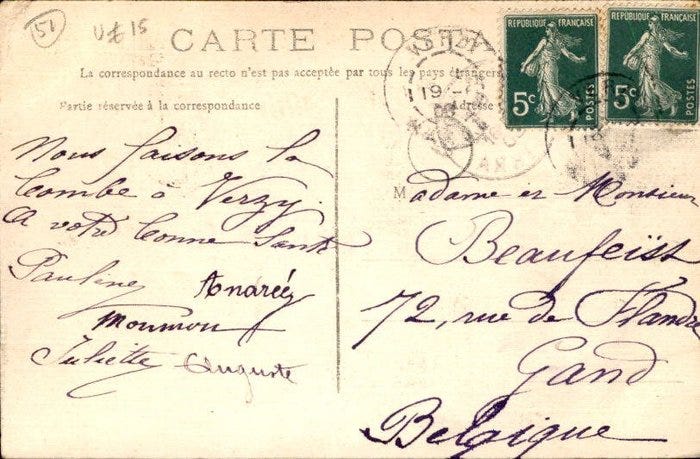 51
U£ 15
CARTE POSTA
La correspondance au recto n'est pas acceptée par tous les pays étrangers
Partie réservée à la correspondance
Adresse
RÉPUBLIQUE FRANÇAISE
5c
POSTES
RÉPUBLIQUE FRANÇAISE
5c
POSTES
Nous faisons la
bombe à Verzy.
A votre bonne Santé
Pauline Andrée
Moumou
Juliette Auguste
Madame et Monsieur
Beaufeist
72, rue de Flandre
Gand
Belgique